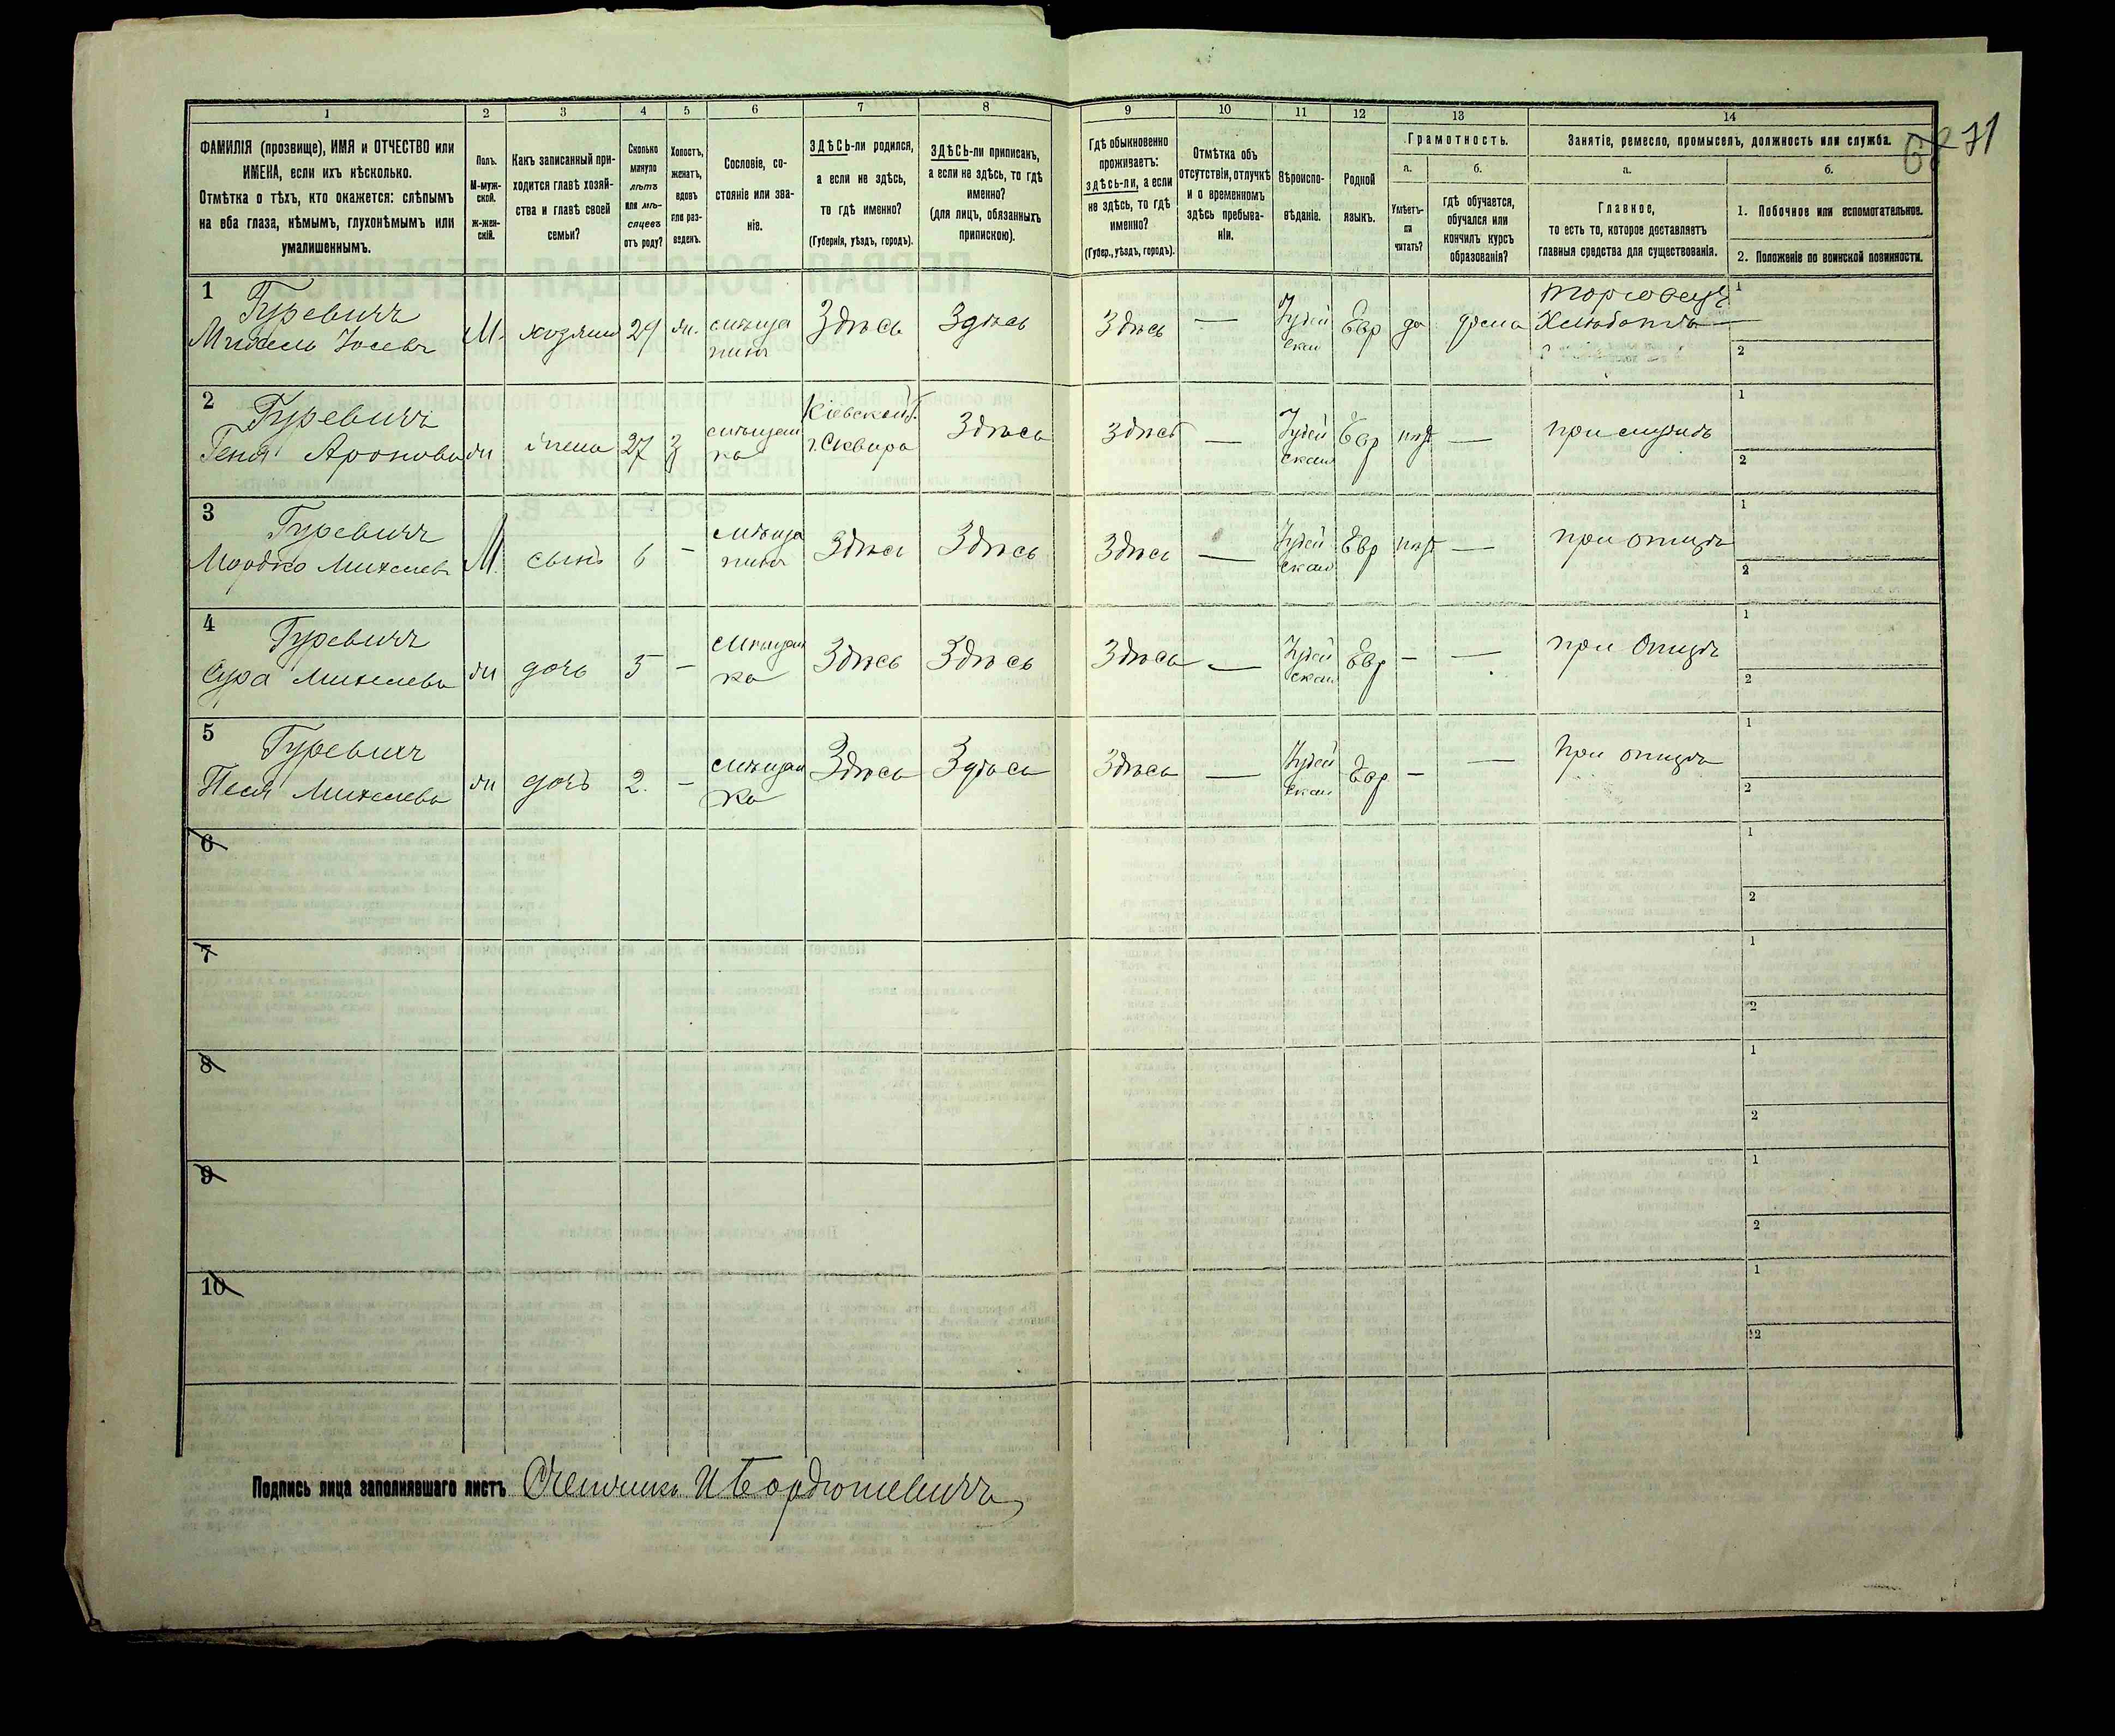 1 2 3 4 5 6 7 8 9 10 11 12 13 14
ФАМИЛІЯ (прозвище), ИМЯ и ОТЧЕСТВО или
ИМЕНА, если ихъ нѣсколько.
Отмѣтка о тѣхъ, кто окажется: слѣпымъ
на оба глаза, нѣмымъ, глухонѣмымъ или
умалишеннымъ.
Полъ.
М-муж-
ской.
ж-жен-
скій.
Какъ записанный при-
ходится главѣ хозяй-
ства и главѣ своей
семьи?
Сколько
минуло
лѣтъ
или мѣ-
сяцевъ
отъ роду?
Холостъ,
женатъ,
вдовъ
или раз-
веденъ.
Сословіе, со-
стояніе или зва-
ніе.
ЗДѢСЬ-ли родился,
а если не здѣсь,
то гдѣ именно?
(Губернія, уѣздъ, городъ).
ЗДѢСЬ-ли приписанъ,
а если не здѣсь, то гдѣ
именно?
(для лицъ, обязанныхъ
припискою).
Гдѣ обыкновенно
проживаетъ:
здѣсь-ли, а если
не здѣсь, то гдѣ
именно?
(Губер., уѣздъ, городъ).
Отмѣтка объ
отсутствіи, отлучкѣ
и о временномъ
здѣсь пребыва-
ніи.
Вѣроиспо-
вѣданіе.
Родной
языкъ.
Грамотность.
а.
Умѣетъ-
ли
читать?
б.
гдѣ обучается,
обучался или
кончилъ курсъ
образованія?
Занятіе, ремесло, промыселъ, должность или служба.
а.
Главное,
то есть то, которое доставляетъ
главныя средства для существованія.
б.
1. Побочное или вспомогательное.
2. Положеніе по воинской повинности.
71
1 Гуревичъ
Михель Іосевъ М. хозяинъ 29 ж. мѣща
нинъ Здѣсь Здѣсь Здѣсь — Іудей
ская Евр да дома Торговецъ
1
2
2 Гуревичъ
Геня Аронова ж жена 27 З мѣщан
ка Кіевской г.
г. Сквира Здѣсь Здѣсь — Іудей
ская Евр нѣт — при мужѣ
1
2
3 Гуревичъ
Мордко Михелевъ М. сынъ 6 — мѣща
нинъ Здѣсь Здѣсь Здѣсь — Іудей
ская Евр нѣт — при отцѣ
1
2
4 Гуревичъ
Сура Михелева ж дочь 5 — мѣщан
ка Здѣсь Здѣсь Здѣсь — Іудей
ская Евр — — при Отцѣ
1
2
5 Гуревичъ
Песя Михелева ж дочь 2. — мѣщан
ка Здѣсь Здѣсь Здѣсь — Іудей
ская Евр — — При отцѣ
1
2
6
1
2
7
1
2
8
1
2
9
1
2
10
1
2
Подпись лица заполнявшаго листъ Счетчикъ И Бордюшевичъ